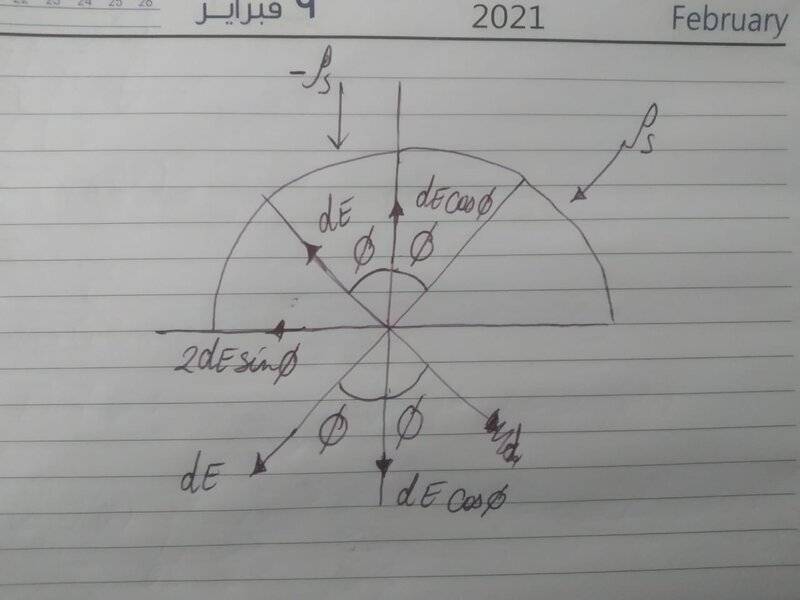 22 23 24 25 26
٩ فبراير 2021 February
-ρs
ρs
dE
dE cosϕ
ϕ ϕ
2dE sinϕ
ϕ ϕ
dE
dE cosϕ